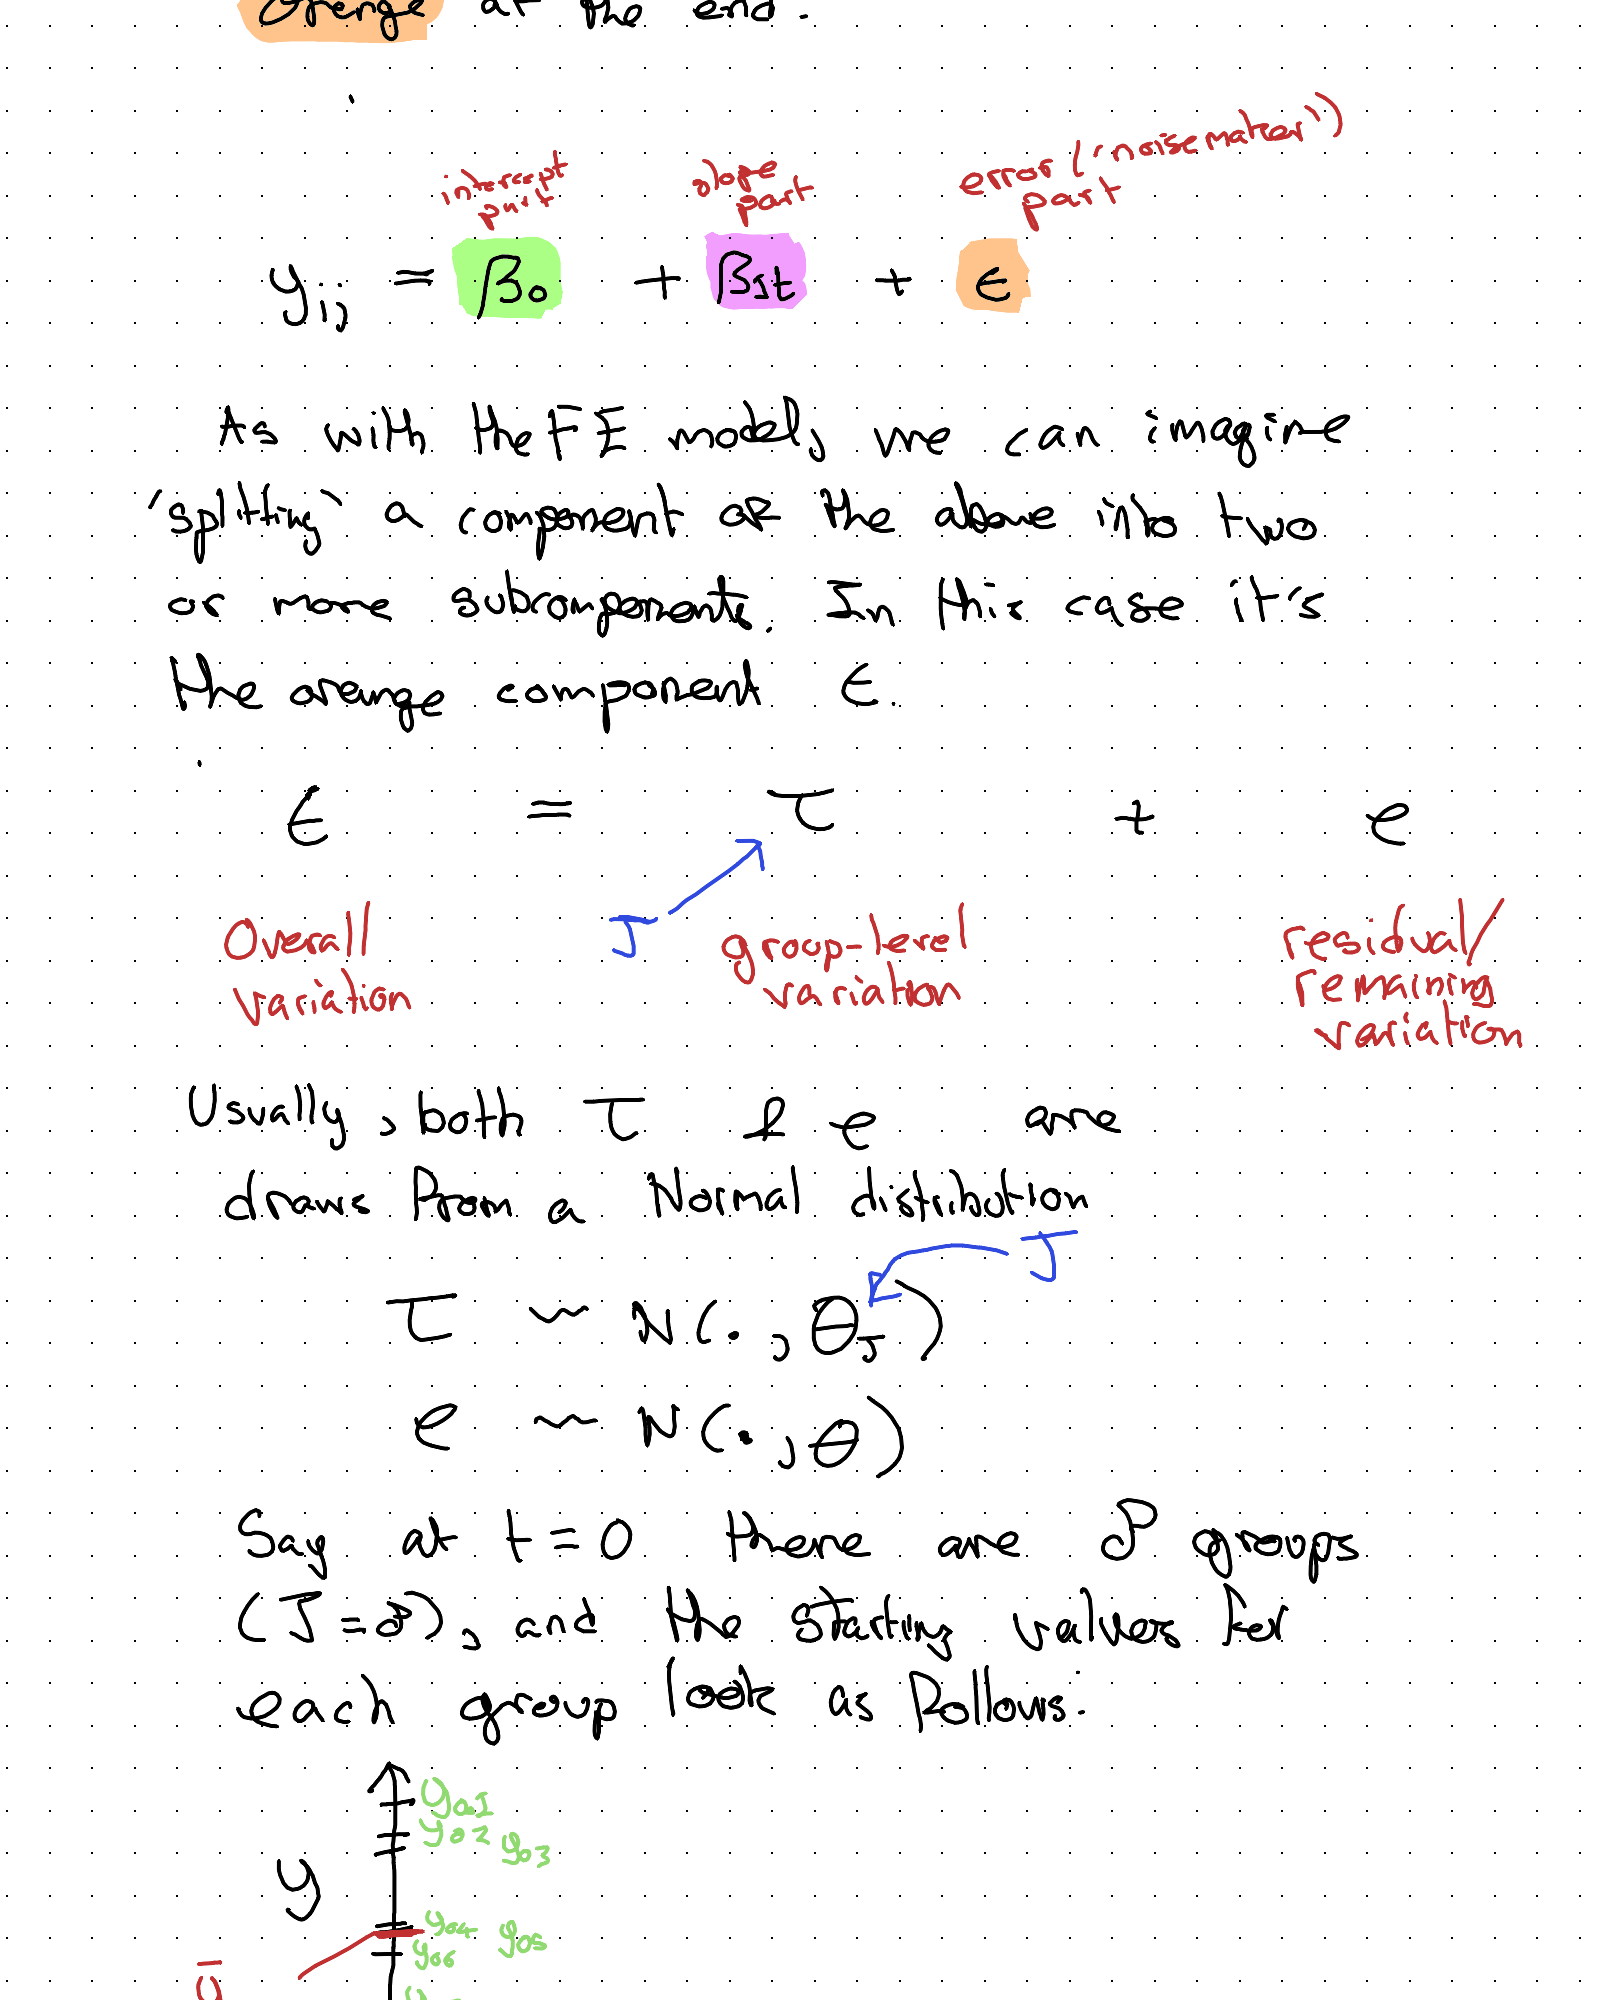 orange at the end.
intercept part
slope part
error ('noisemaker') part
yij = β0 + β1t + ϵ
As with the FE model, we can imagine
'splitting' a component of the above into two
or more subcomponents. In this case it's
the orange component ϵ.
ϵ = τ + e
J
Overall variation
group-level variation
residual/ remaining variation
Usually, both τ & e are
draws from a Normal distribution
J
τ ~ N(., θJ)
e ~ N(., θ)
Say at t = 0 there are 8 groups
(J = 8), and the starting values for
each group look as follows.
y01
y02 y03
y
y04 y05
y06